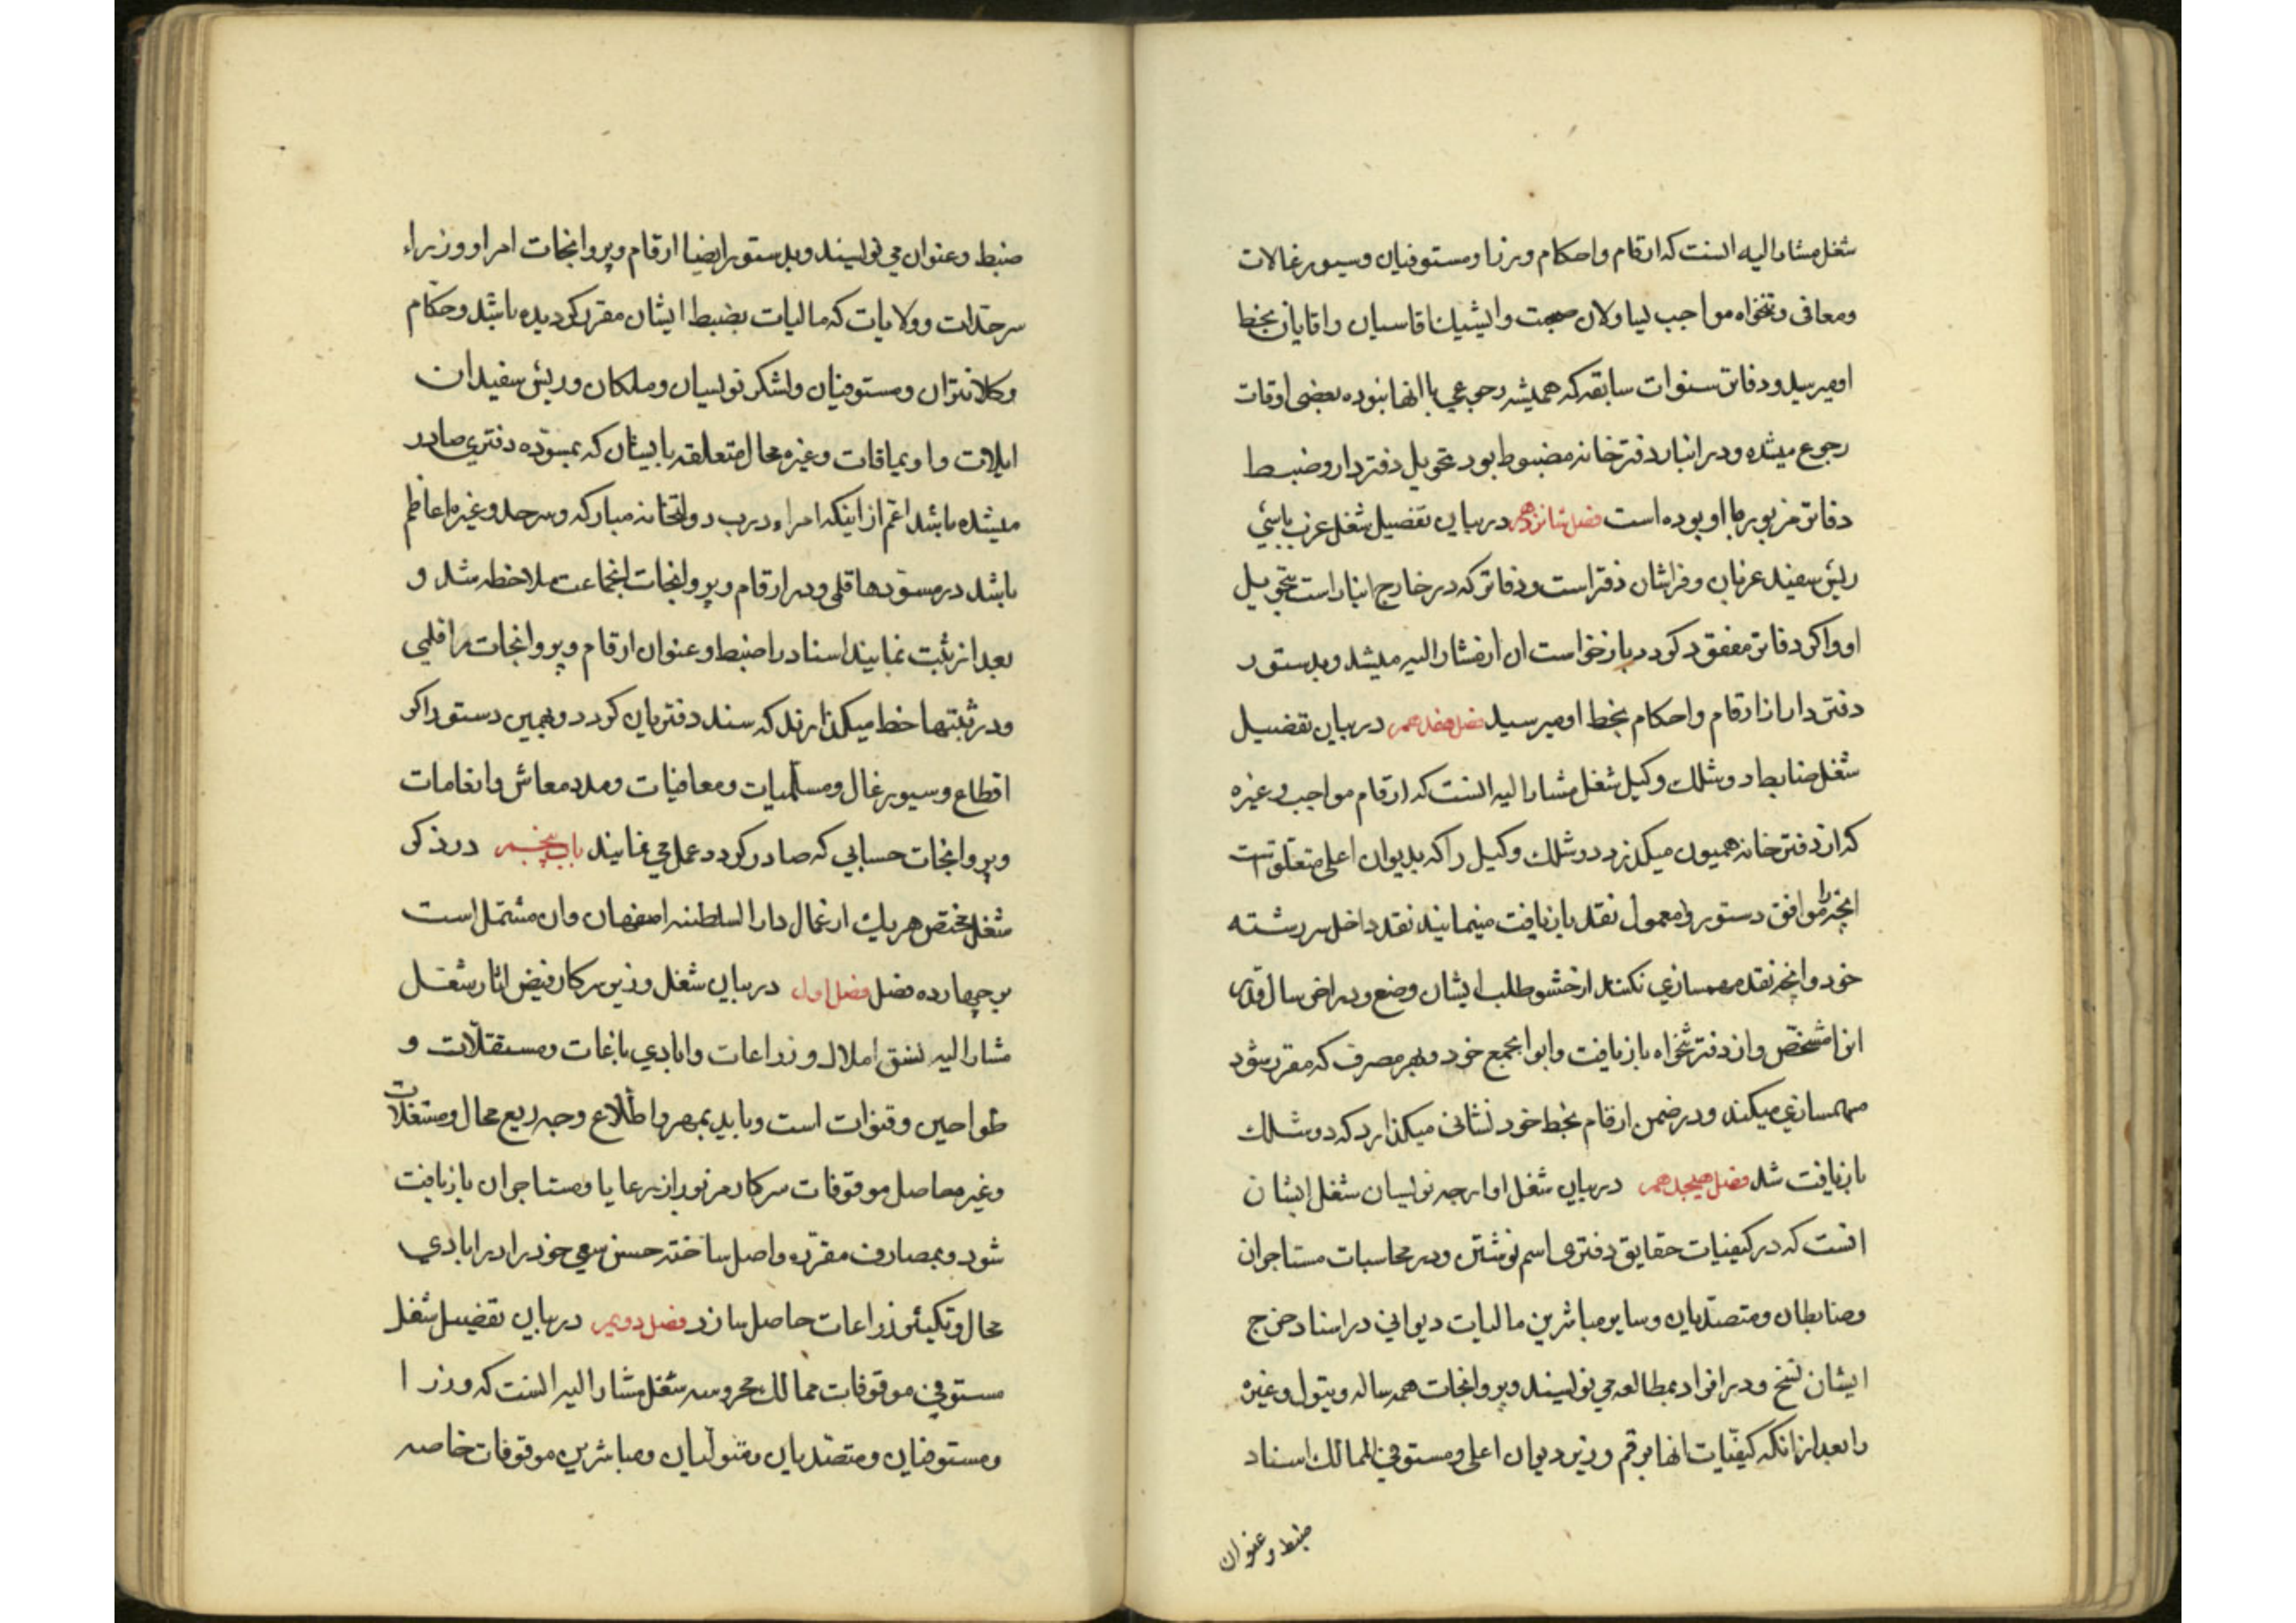 شغل مشارالیه انست که ارقام و احکام وزرا و مستوفیان و سیورغالات
و معافی و تنخواه مواجب یساولان صحبت و ایشیک اقاسیان و اقایان بخط
او میرسید و دفاتر سنوات سابقه که همیشه رجوعی باانها نبوده بعضی اوقات
رجوع میشده و در انبار دفترخانه مضبوط بود تحویل دفتردار و ضبط
دفاتر مزبوره با او بوده است فصل شانزدهم در بیان تفصیل شغل عزب باشی
ریش سفید عزبان و فراشان دفتر است و دفاتر که در خارج انبار است بتحویل
او و اکر دفاتر مفقود کردد بازخواست ان از مشارالیه میشد و بدستور
دفتردار از ارقام و احکام بخط او میرسید فصل هفدهم در بیان تفصیل
شغل ضابطه دوشلک وکیل شغل مشارالیه انست که ارقام مواجب و غیره
که از دفترخانه همیون میکذرد دوشلک وکیل را که بدیوان اعلی متعلق است
انچه را موافق دستور و معمول نقد بازیافت مینمایند نقد داخل سررشته
خود و انچه نقد مهمسازی نکنند از حشو طلب ایشان وضع و در اخر سال قدر
انرا مشخص و از دفتر تنخواه بازیافت و ابوابجمع خود و بهر مصرف که مقرر شود
مهمسازی میکند و در ضمن ارقام بخط خود نشانی میکذارد که دوشلک
بازیافت شد فصل هیجدهم در بیان شغل اوارجه نویسان شغل ایشان
انست که در کیفیات حقایق دفتری اسم نوشتن و در محاسبات مستاجران
و ضابطان و متصدیان و سایر مباشرین مالیات دیوانی در اسناد خرج
ایشان نسخ و در افراد بمطالعه می نویسند و پروانجات همه ساله و تیول و غیره
را بعد از انکه کیفیات انها برقم وزیر دیوان اعلی و مستوفی الممالک اسناد
ضبط و عنوان
ضبط و عنوان می نویسند و بدستور ایضا ارقام و پروانجات امرا و وزراء
سرحدات و ولایات که مالیات بضبط ایشان مقرر کردیده باشد و حکام
و کلانتران و مستوفیان و لشکر نویسان و ملکان و ریش سفیدان
ایلات و اویماقات و غیره محال متعلقه بایشان که بمسوده دفتری صادر
میشده باشد اعم از اینکه امراء درب دولتخانه مبارکه و سرحد و غیره اعاظم
باشد در مسودها قلمی و در ارقام و پروانجات انجماعت ملاحظه شد و
بعد از ثبت نمایند اسناد را ضبط و عنوان ارقام و پروانجات را قلمی
و در ثبتها خط میکذارند که سند دفتریان کردد و بهمین دستور اکر
اقطاع و سیورغال و مسلمیات و معافیات و مدد معاش و انعامات
و پروانجات حسابی که صادر کردد عمل می نمایند باب پنجم در ذکر
شغل مختص هریک از عمال دارالسلطنه اصفهان و ان مشتمل است
بر چهارده فصل فصل اول در بیان شغل وزیر سرکار فیض اثار شغل
مشارالیه نسق املاک و زراعات و ابادی باغات و مستقلات و
طواحین و قنوات است و باید بمهر و اطلاع وجه ریع محال و مستغلات
و غیره حاصل موقوفات سرکار مزبور از رعایا و مستاجران بازیافت
شود و بمصارف مقرره واصل ساخته حسن سعی خود را در ابادی
محال و تکثیر زراعات حاصل سازد فصل دویم در بیان تفصیل شغل
مستوفی موقوفات ممالک محروسه شغل مشارالیه انست که وزرا
و مستوفیان و متصدیان و متولیان و مباشرین موقوفات خاصه